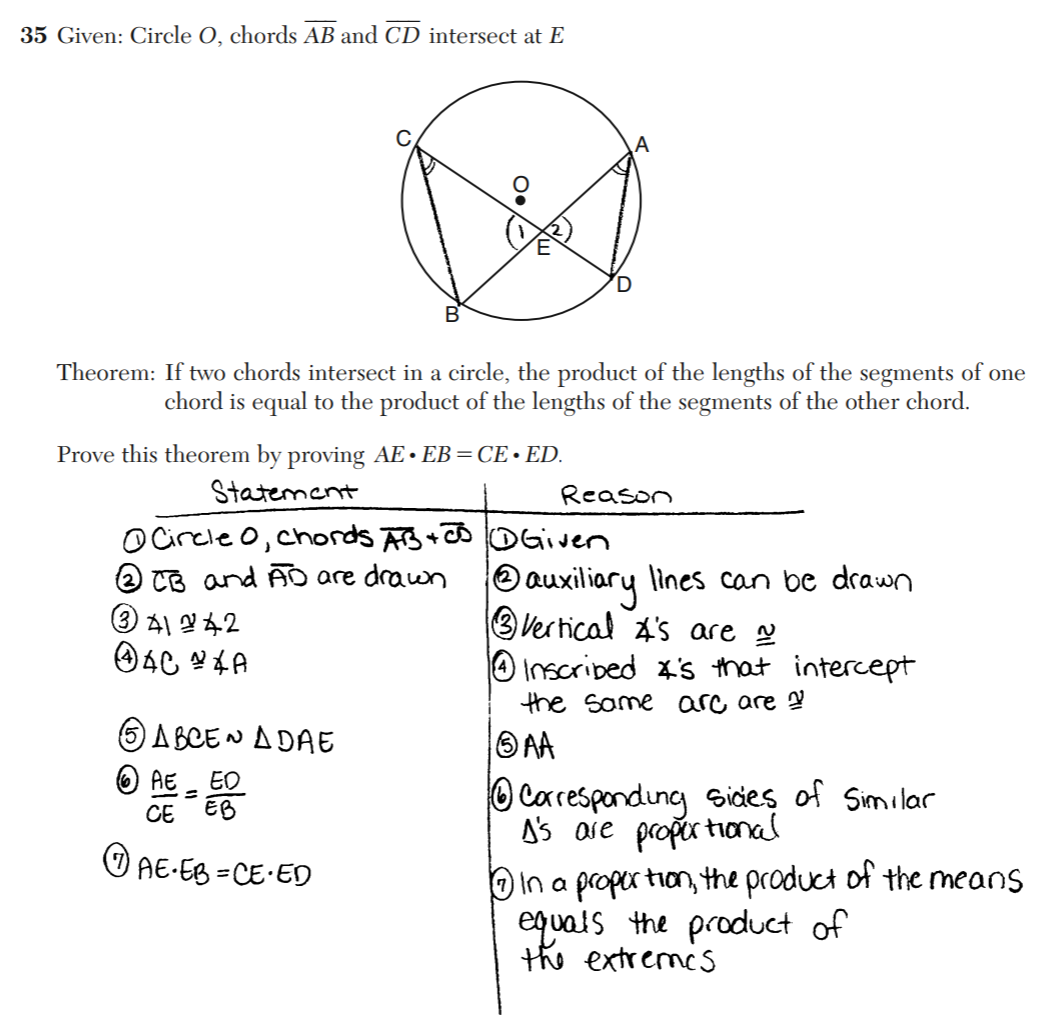 35 Given: Circle O, chords AB and CD intersect at E
C
A
O
1
2
E
D
B
Theorem: If two chords intersect in a circle, the product of the lengths of the segments of one
chord is equal to the product of the lengths of the segments of the other chord.
Prove this theorem by proving AE • EB = CE • ED.
Statement
Reason
① Circle O, chords AB + CD
① Given
② CB and AD are drawn
② auxiliary lines can be drawn
③ ∡1 ≅ ∡2
③ Vertical ∡'s are ≅
④ ∡C ≅ ∡A
④ Inscribed ∡'s that intercept
the same arc are ≅
⑤ ΔBCE ~ ΔDAE
⑤ AA
⑥ AE/CE = ED/EB
⑥ Corresponding sides of similar
Δ's are proportional
⑦ AE·EB = CE·ED
⑦ In a proportion, the product of the means
equals the product of
the extremes